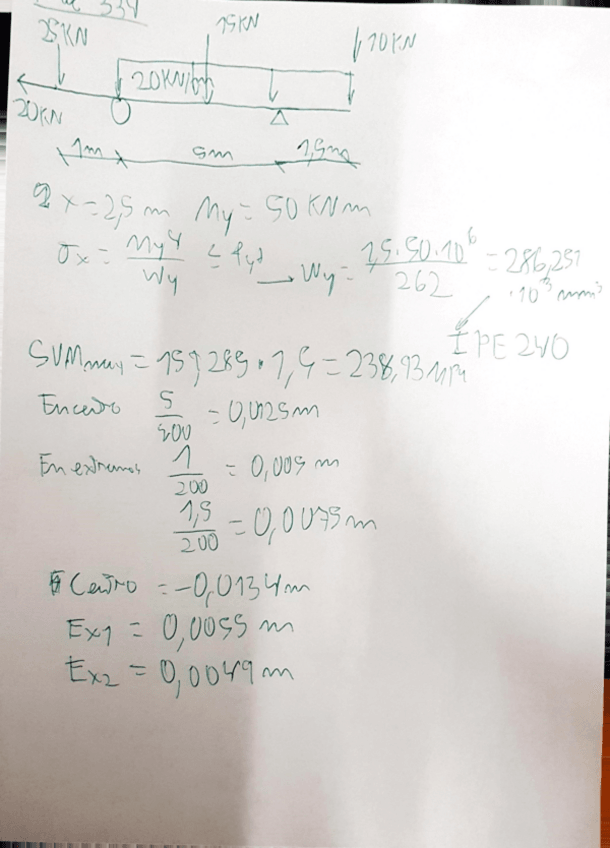 334
25KN
15KN
10KN
20KN/m
20KN
1m 5m 1,5m
x=2,5m My= 50 KNm
σx = My·y / Wy ≤ fyd → Wy = 1,5·50·10⁶ / 262 = 286,251 ·10³ mm³
IPE 240
SVMmax = 159,285 · 1,5 = 238,93 MPa
En centro 5/400 = 0,0125m
En extremos 1/200 = 0,005 m
1,5/200 = 0,0075m
Centro = -0,0134m
Ex1 = 0,0055 m
Ex2 = 0,0049 m